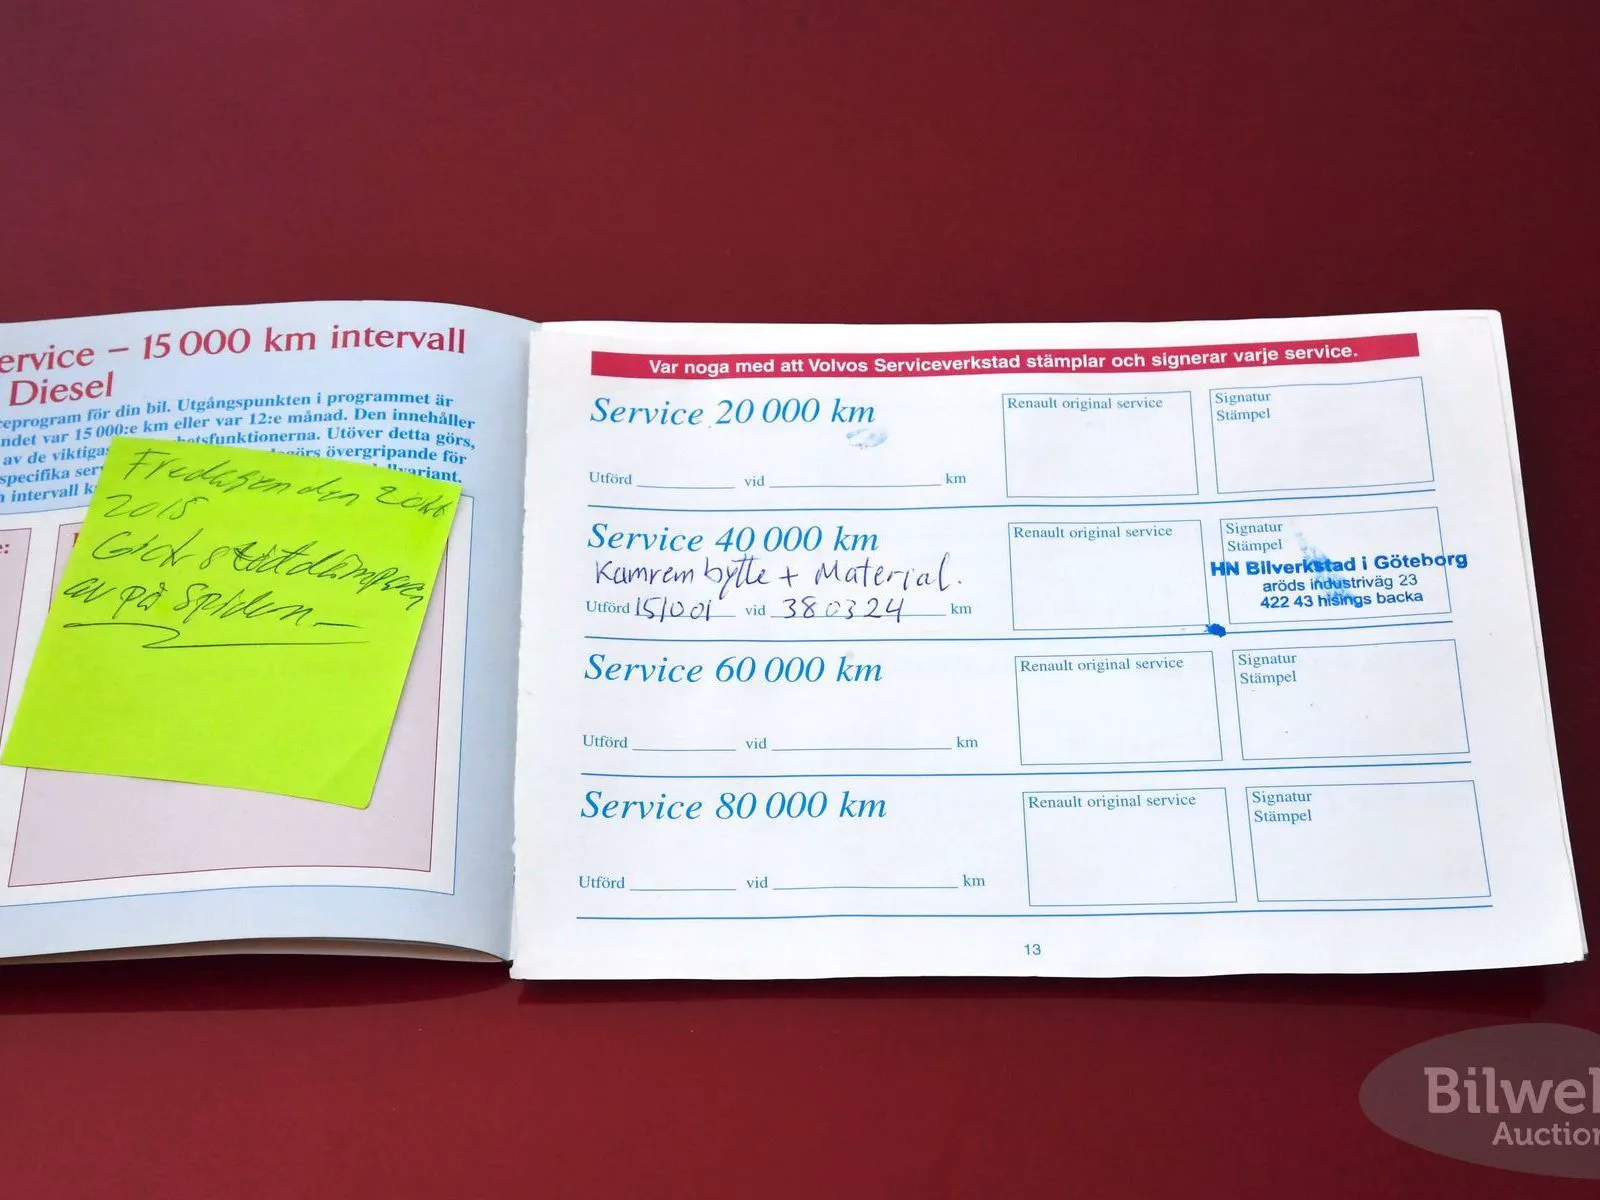 ervice – 15 000 km intervall
Diesel
ceprogram för din bil. Utgångspunkten i programmet är
ndet var 15 000:e km eller var 12:e månad. Den innehåller
av de viktigas hetsfunktionerna. Utöver detta görs,
specifika ser görs övergripande för
n intervall k llvariant.
e:
Fredagen den 2 okt
2015
Gick stötdämparen
av på Spiden.
Var noga med att Volvos Serviceverkstad stämplar och signerar varje service.
Service 20 000 km
Renault original service
Signatur
Stämpel
Utförd vid km
Service 40 000 km
Kamrem bytte + Material.
Utförd 151001 vid 380324 km
Renault original service
Signatur
Stämpel
HN Bilverkstad i Göteborg
aröds industriväg 23
422 43 hisings backa
Service 60 000 km
Renault original service
Signatur
Stämpel
Utförd vid km
Service 80 000 km
Renault original service
Signatur
Stämpel
Utförd vid km
13
Bilwe
Auction